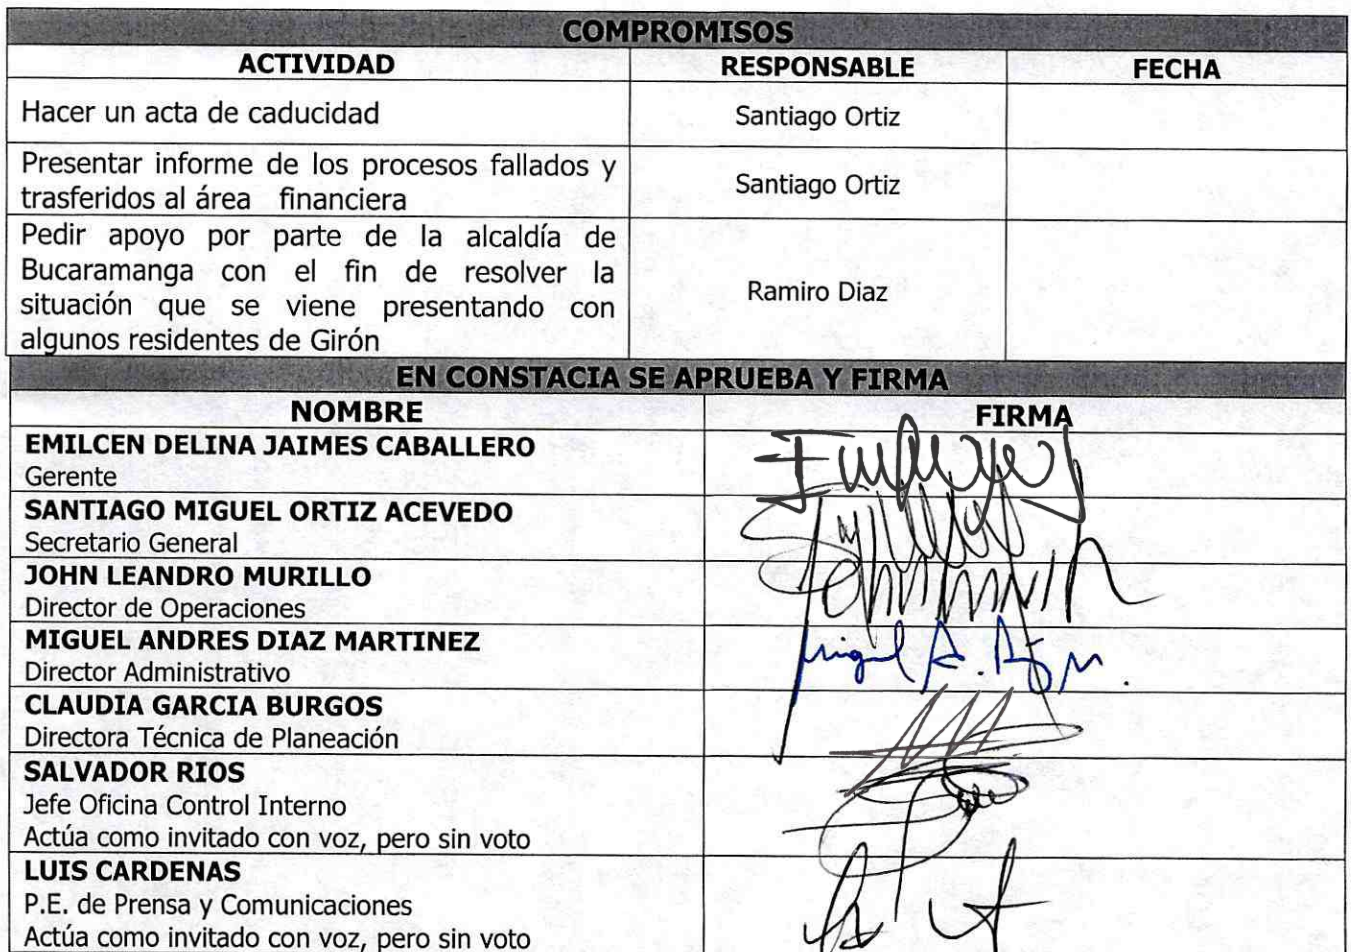 COMPROMISOS
ACTIVIDAD RESPONSABLE FECHA
Hacer un acta de caducidad Santiago Ortiz
Presentar informe de los procesos fallados y
trasferidos al área financiera
Santiago Ortiz
Pedir apoyo por parte de la alcaldía de
Bucaramanga con el fin de resolver la
situación que se viene presentando con
algunos residentes de Girón
Ramiro Diaz
EN CONSTACIA SE APRUEBA Y FIRMA
NOMBRE FIRMA
EMILCEN DELINA JAIMES CABALLERO
Gerente
SANTIAGO MIGUEL ORTIZ ACEVEDO
Secretario General
JOHN LEANDRO MURILLO
Director de Operaciones
MIGUEL ANDRES DIAZ MARTINEZ
Director Administrativo
Miguel A.
CLAUDIA GARCIA BURGOS
Directora Técnica de Planeación
SALVADOR RIOS
Jefe Oficina Control Interno
Actúa como invitado con voz, pero sin voto
LUIS CARDENAS
P.E. de Prensa y Comunicaciones
Actúa como invitado con voz, pero sin voto